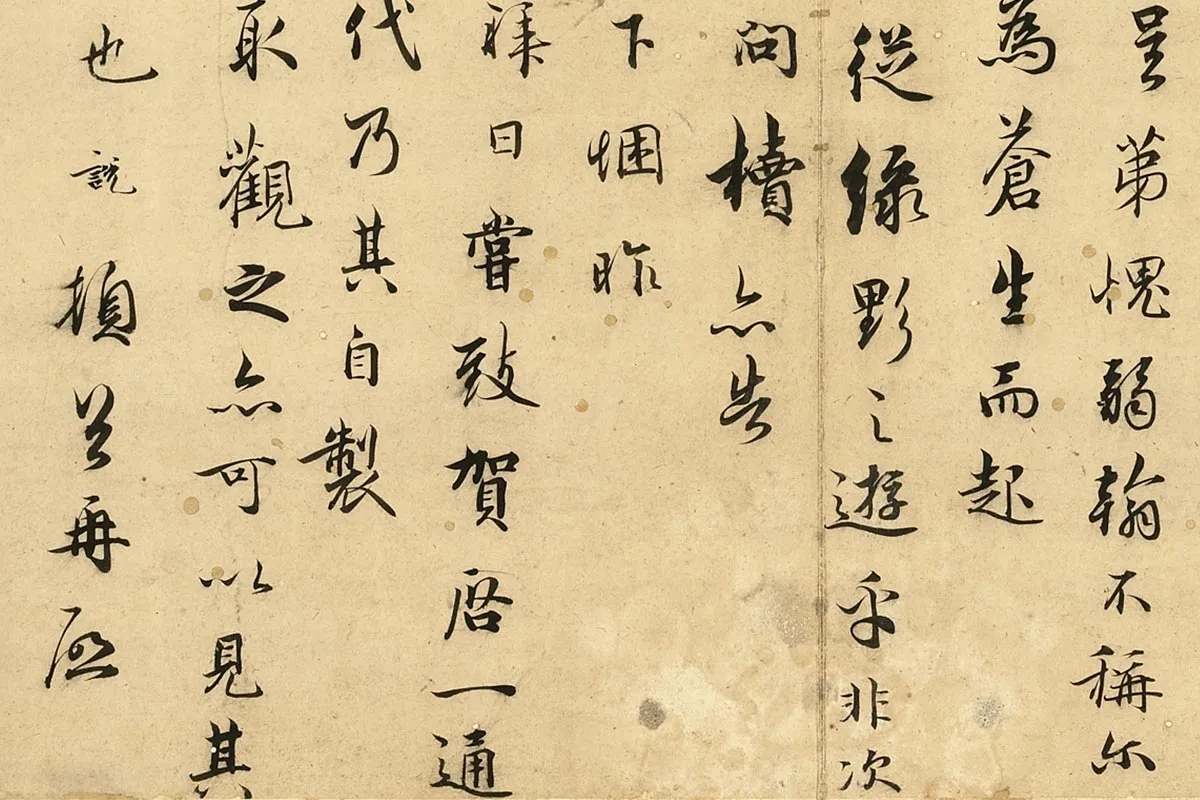 呈弟愧弱翰不稱尔
為蒼生而起
從綠野之遊乎非次
問櫝亦告
下悃昨
禖日嘗致賀啓一通
代乃其自製
取觀之亦可以見其
也說頓首再啓